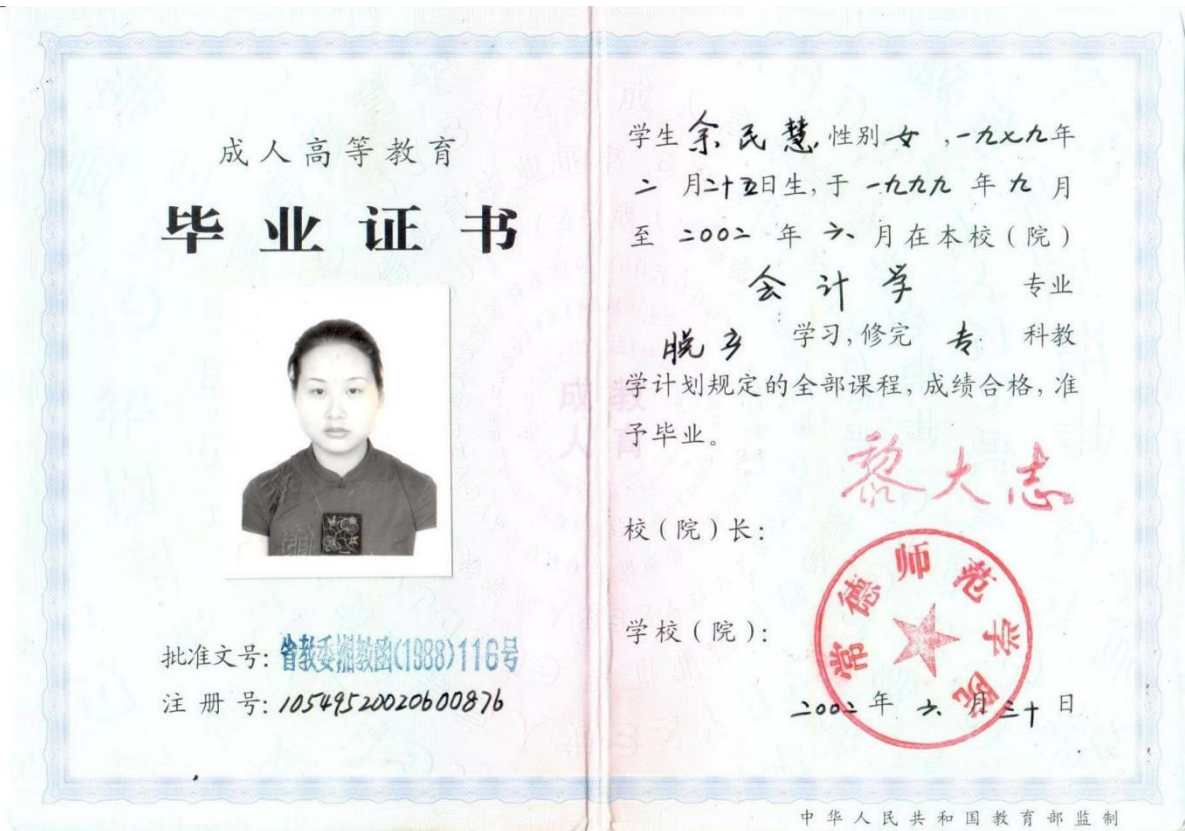 成人高等教育
毕业证书
批准文号：省教委湘教函(1988)116号
注册号：10549520020600876
学生余民慧，性别女，一九七九年
二月二十五日生，于一九九九年九月
至二〇〇二年六月在本校（院）
会计学专业
脱产学习，修完专科教
学计划规定的全部课程，成绩合格，准
予毕业。
黎大志
校（院）长：
学校（院）：
常德师范学院
二〇〇二年六月三十日
中华人民共和国教育部监制